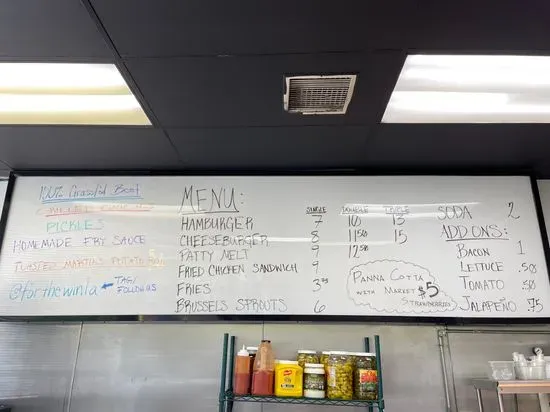 100% Grassfed Beef
PICKLES
HOMEMADE FRY SAUCE
TOASTED MARTINS POTATO BUN
@forthewinla ← TAG/
FOLLOW US
MENU:
SINGLE DOUBLE TRIPLE
HAMBURGER 7 10 13
CHEESEBURGER 8 11.50 15
PATTY MELT 9 12.50
FRIED CHICKEN SANDWICH 9
FRIES 3.75
BRUSSELS SPROUTS 6
PANNA COTTA
WITH MARKET $5
STRAWBERRIES
SODA 2
ADD ONS:
BACON 1
LETTUCE .50
TOMATO .50
JALAPEÑO .75